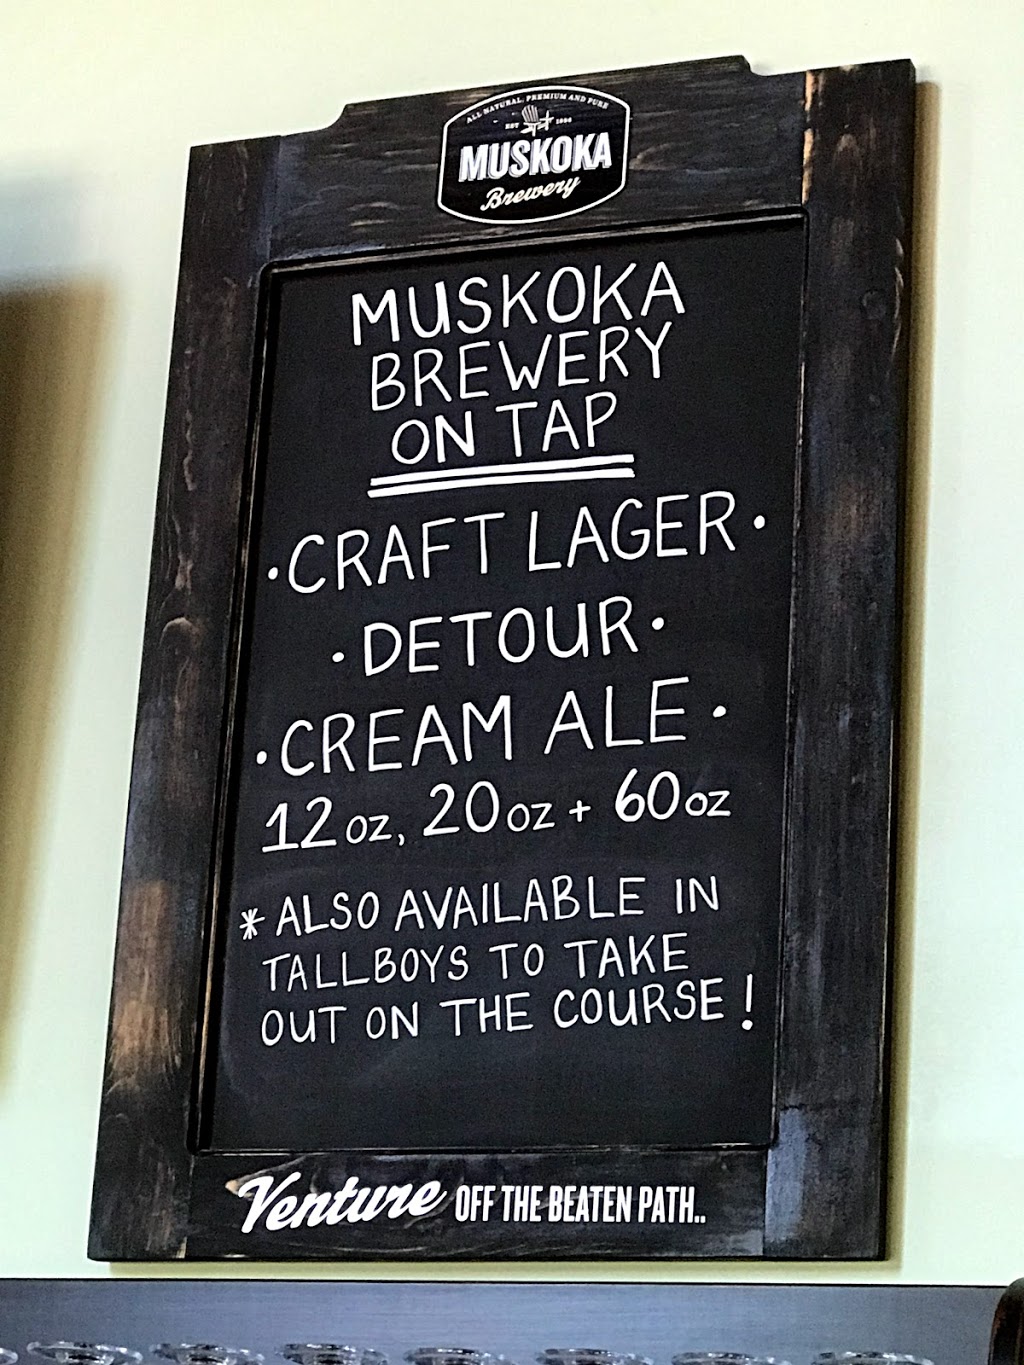 ALL NATURAL, PREMIUM AND PURE
EST 1996
MUSKOKA
Brewery
MUSKOKA
BREWERY
ON TAP
• CRAFT LAGER •
• DETOUR •
• CREAM ALE •
12oz, 20oz + 60oz
* ALSO AVAILABLE IN
TALLBOYS TO TAKE
OUT ON THE COURSE!
Venture OFF THE BEATEN PATH..